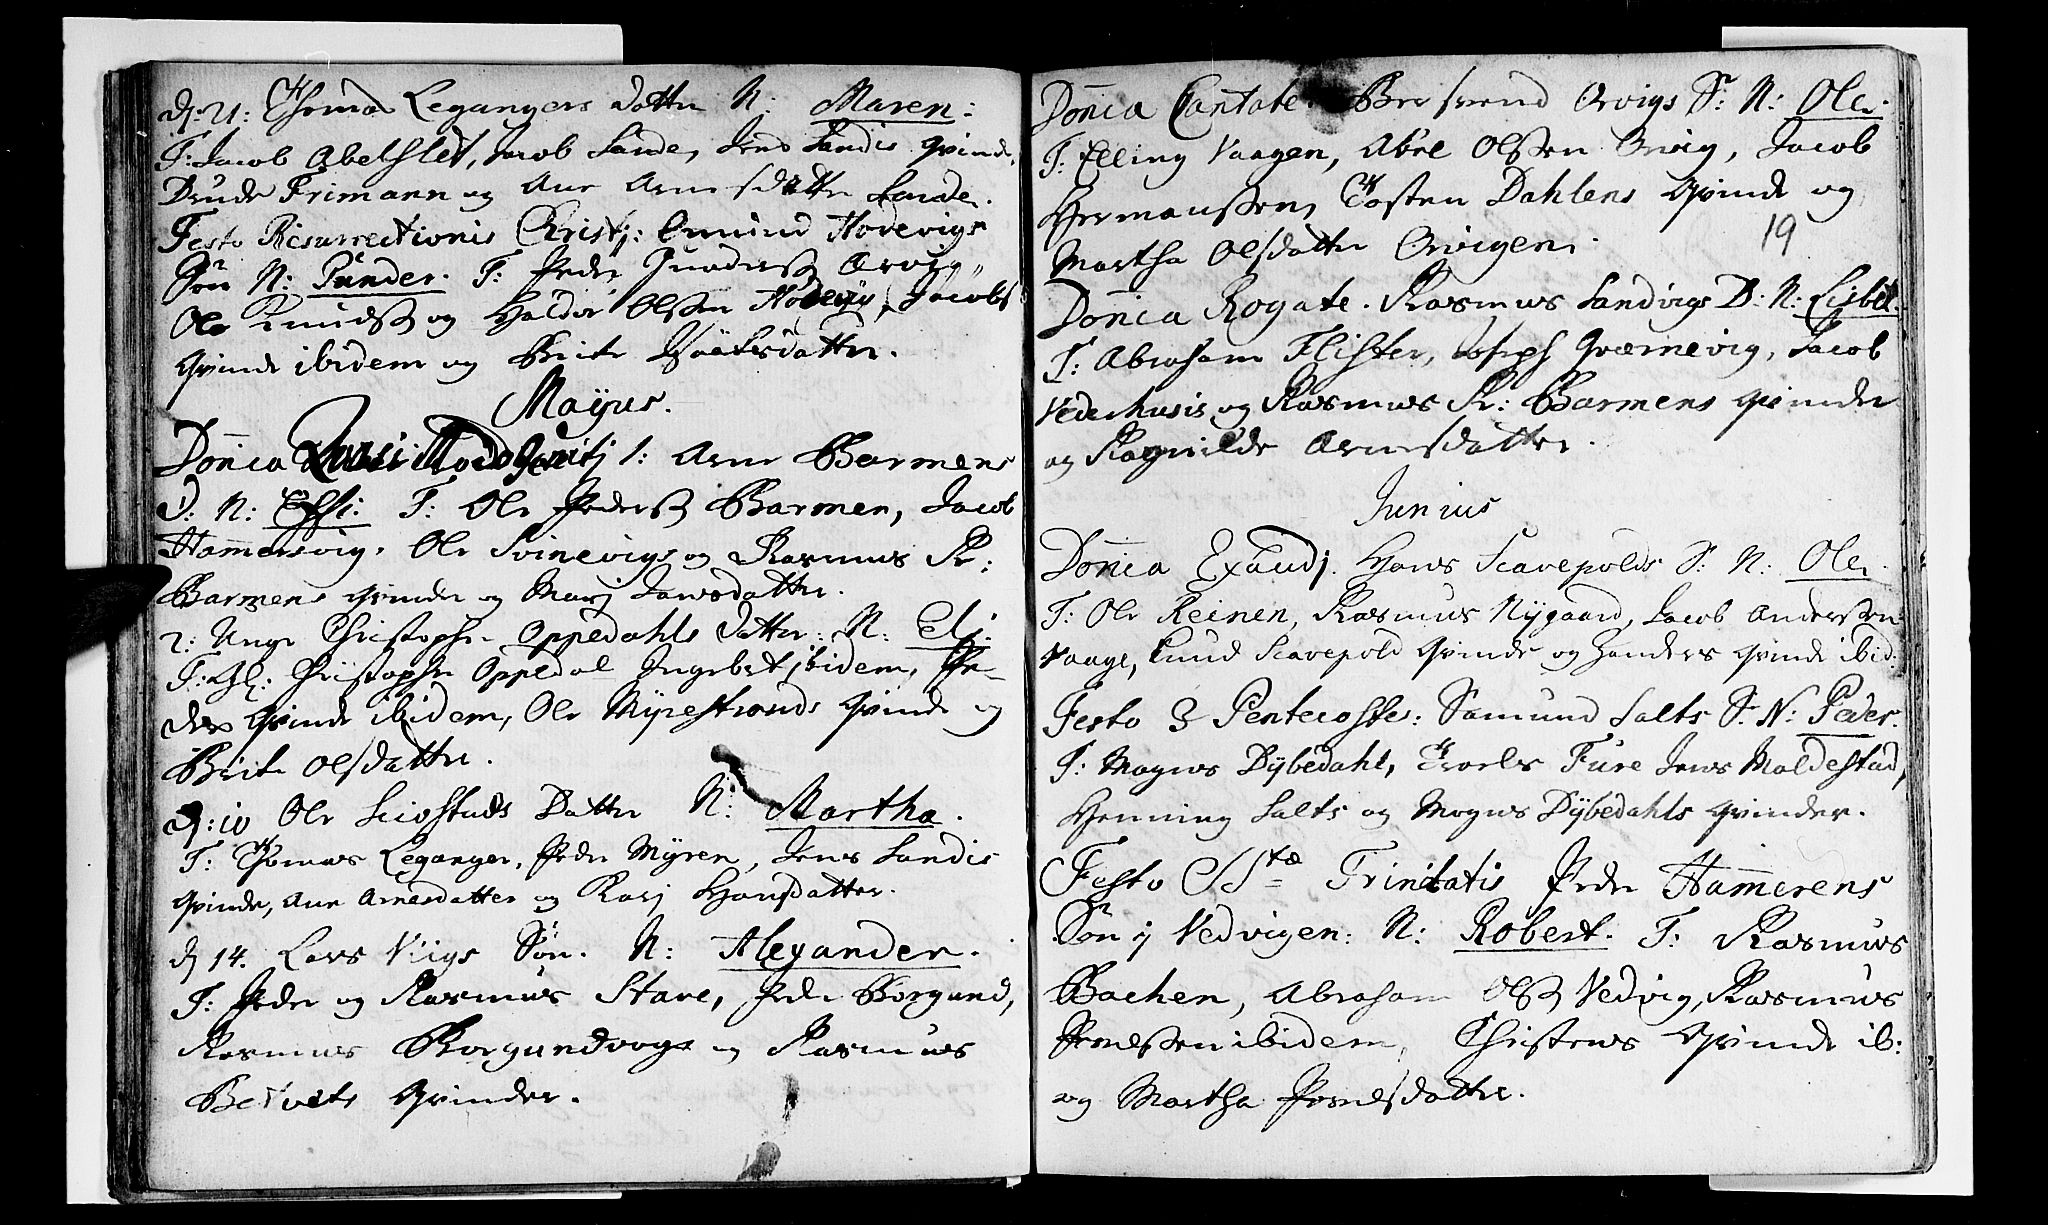 d: 21: Thomas Legangers datter N: Maren:
T: Jacob Abelsset, Jacob Sande, Jens Sandis Qvinde,
Drude Frimann og Ane Arnesdatter Sande.
Festo Resurrectionis Christj: Omund Hovevigs
Søn N: Gunder. T: Peder Gunderss Ørvig,
Ole Knudss og Haldor Olssen Hovevig, Jacobs
Qvinde ibidem og Brite datter.
Majus.
Donica Qvasi Modogenitj 1: Arne Barmens
D: N: T: Ole Pederss Barmen, Jacob
Hammersvig, Ole Svinevigs og Rasmus R:
Barmens qvinder og Marj Jansdatter.
2: Unge Christopher Oppedahls datter: N: Eli:
T: Gl: Christopher Oppedal Ingebet ibidem, Pe-
ders Qvinde ibidem, Ole Myrestrands Qvinde og
Brite Olsdatter.
d: 10 Ole Datter N: Martha.
T: Thomas Leganger, Peder Myren, Jens Sandis
Qvinde, Ane Arnesdatter og Karj Hansdatter.
d 14. Lars Viigs Søn. N: Alexander.
T: Peder og Rasmus Stave, Peder Borgund,
Rasmus Borgundvog og Rasmus
Qvinder.
Donica Cantate. Ørvigs S: N: Ole:
T: Elling Vaagen, Abel Olssen Ørvig, Jacob
Hermanssen, Tosten Dahlens Qvinde og
19
Martha Olsdatter Ørvigen.
Donica Rogate. Rasmus Sandvigs D: N: Lisbet.
T: Abraham Flister, Joseph Qværnevig, Jacob
Vederhusis og Rasmus R: Barmens qvinder
og Ragnilde Arnesdatter.
Junius
Donica Exaudj. Hans Scavepolds S: N: Ole.
T: Ole Reinen, Rasmus Nygaard, Jacob Anderssen
Vaage, Knud Scavepold Qvinde og Qvinde ibid:
Festo 3 Pentecostes: Samund Salts S: N: Peder.
T: Mogns Dybedahl, Troels Fure Jens Maldestad,
Henning Salts og Mogns Dybedahls qvinder.
Festo SStæ Trinitatis Peder Hammerens
Søn j Vedvigen: N: Robert. T: Rasmus
Bachen, Abraham Olss Vedvig, Rasmus
ibidem, Christens Qvinde ib:
og Martha